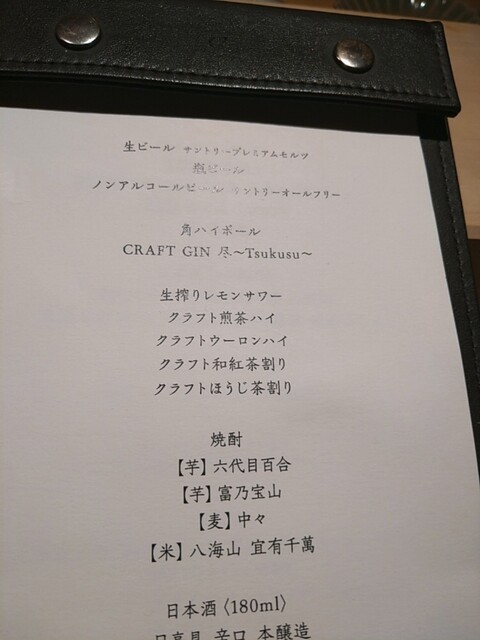 生ビール サントリープレミアムモルツ
瓶ビール
ノンアルコールビール サントリーオールフリー
角ハイボール
CRAFT GIN 尽〜Tsukusu〜
生搾りレモンサワー
クラフト煎茶ハイ
クラフトウーロンハイ
クラフト和紅茶割り
クラフトほうじ茶割り
焼酎
【芋】六代目百合
【芋】富乃宝山
【麦】中々
【米】八海山 宜有千萬
日本酒〈180ml〉
日高見 辛口 本醸造